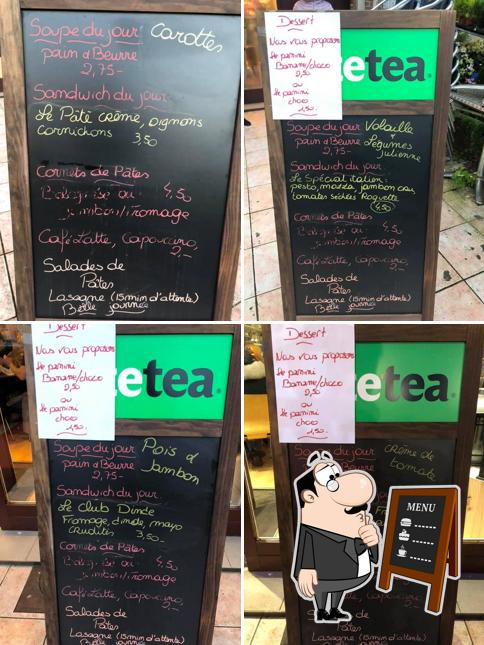 Soupe du jour Carottes
pain & Beurre
2,75-
Sandwich du jour
Le Pâté crème, oignons
Cornichons 3,50
Cornets de Pâtes
4,50
jambon/fromage
Café Latte, Capuccino
2,-
Salades de
Pâtes
Lasagne (15min d'attente)
Belle journée
Dessert
Nous vous proposons
Le panini
Banane/choco
2,50
ou
Le panini
choco
1,50.
etea
Soupe du jour Volaille &
pain & Beurre Légumes
2,75- Julienne
Sandwich du jour
Le Spécial italien:
pesto, mozza, jambon cru,
tomates séchées Roquette
4,50
Cornets de Pâtes
4,50
jambon/fromage
Café Latte, Capuccino
2,-
Salades de
Pâtes
Lasagne (15min d'attente)
Belle journée
Dessert
Nous vous proposons
Le panini
Banane/choco
2,50
ou
Le panini
choco
1,50.
etea
Soupe du jour Pois &
pain & Beurre Jambon
2,75-
Sandwich du jour
Le club Dinde
Fromage, dinde, mayo
crudités 3,50-
Cornets de Pâtes
4,50
jambon/fromage
Café Latte, Capuccino
2,-
Salades de
Pâtes
Lasagne (15min d'attente)
Belle journée
Dessert
Nous vous proposons
Le panini
Banane/choco
2,50
ou
Le panini
choco
1,50.
etea
crème de
tomate
MENU
de
Pâtes
Lasagne (15min d'attente)